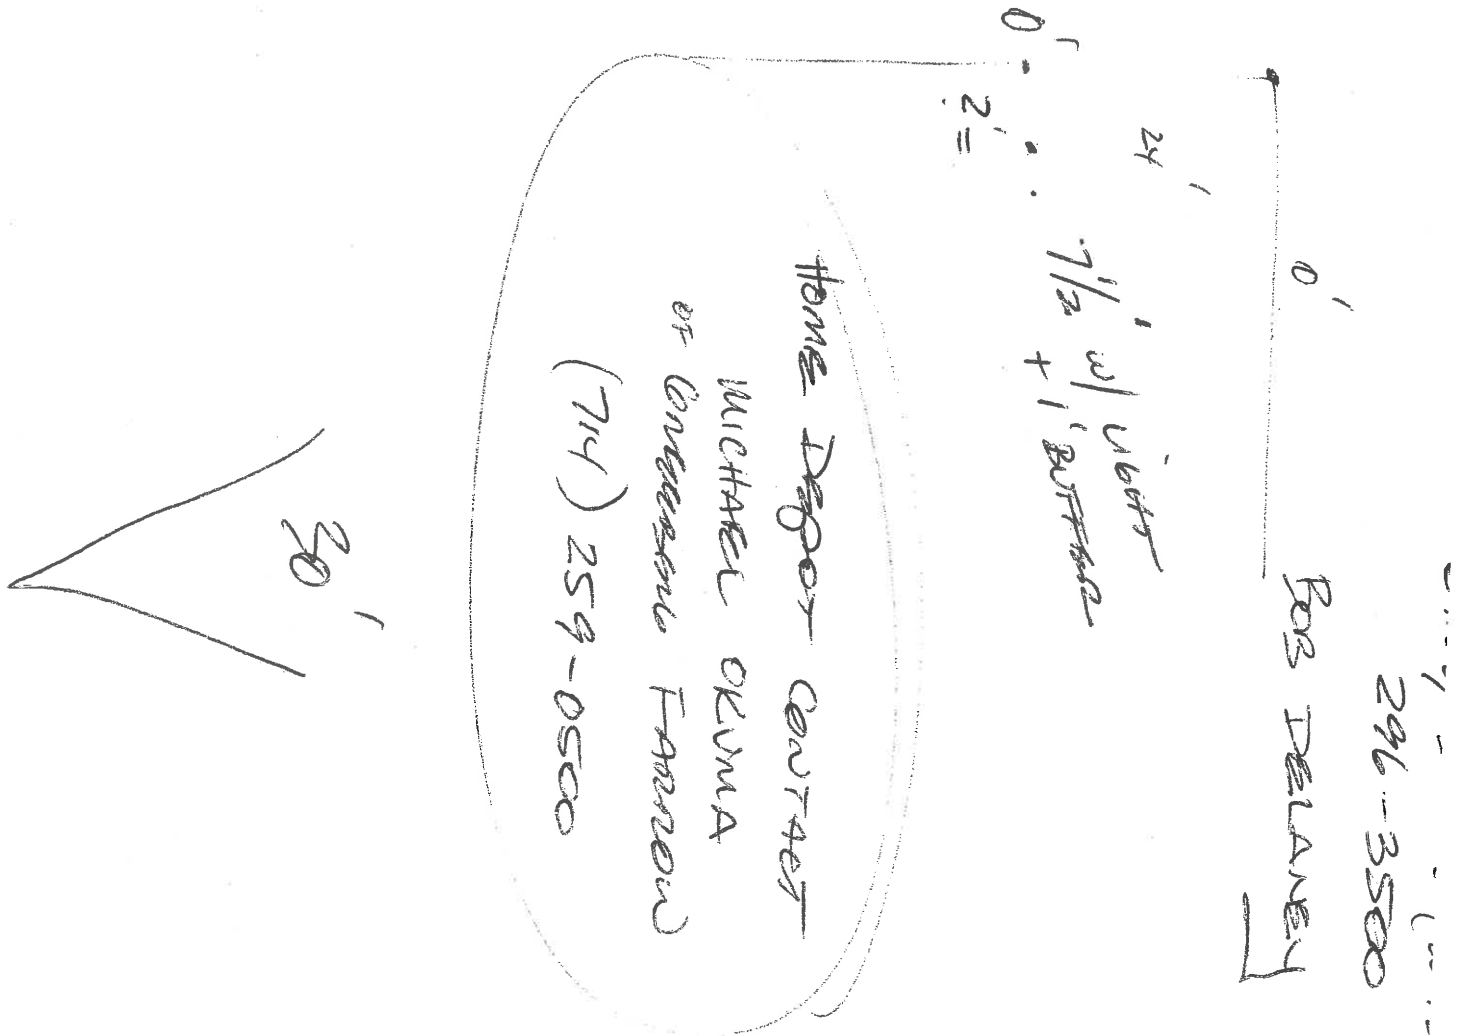 296-3500
BOB DELANEY
0'
24'
7 1/2' w/
+ 1' BUFFER
0'
2' =
HOME DEPOT CONTACT
MICHAEL OKUMA
OF GREENBERG FARROW
(714) 259-0500
30'